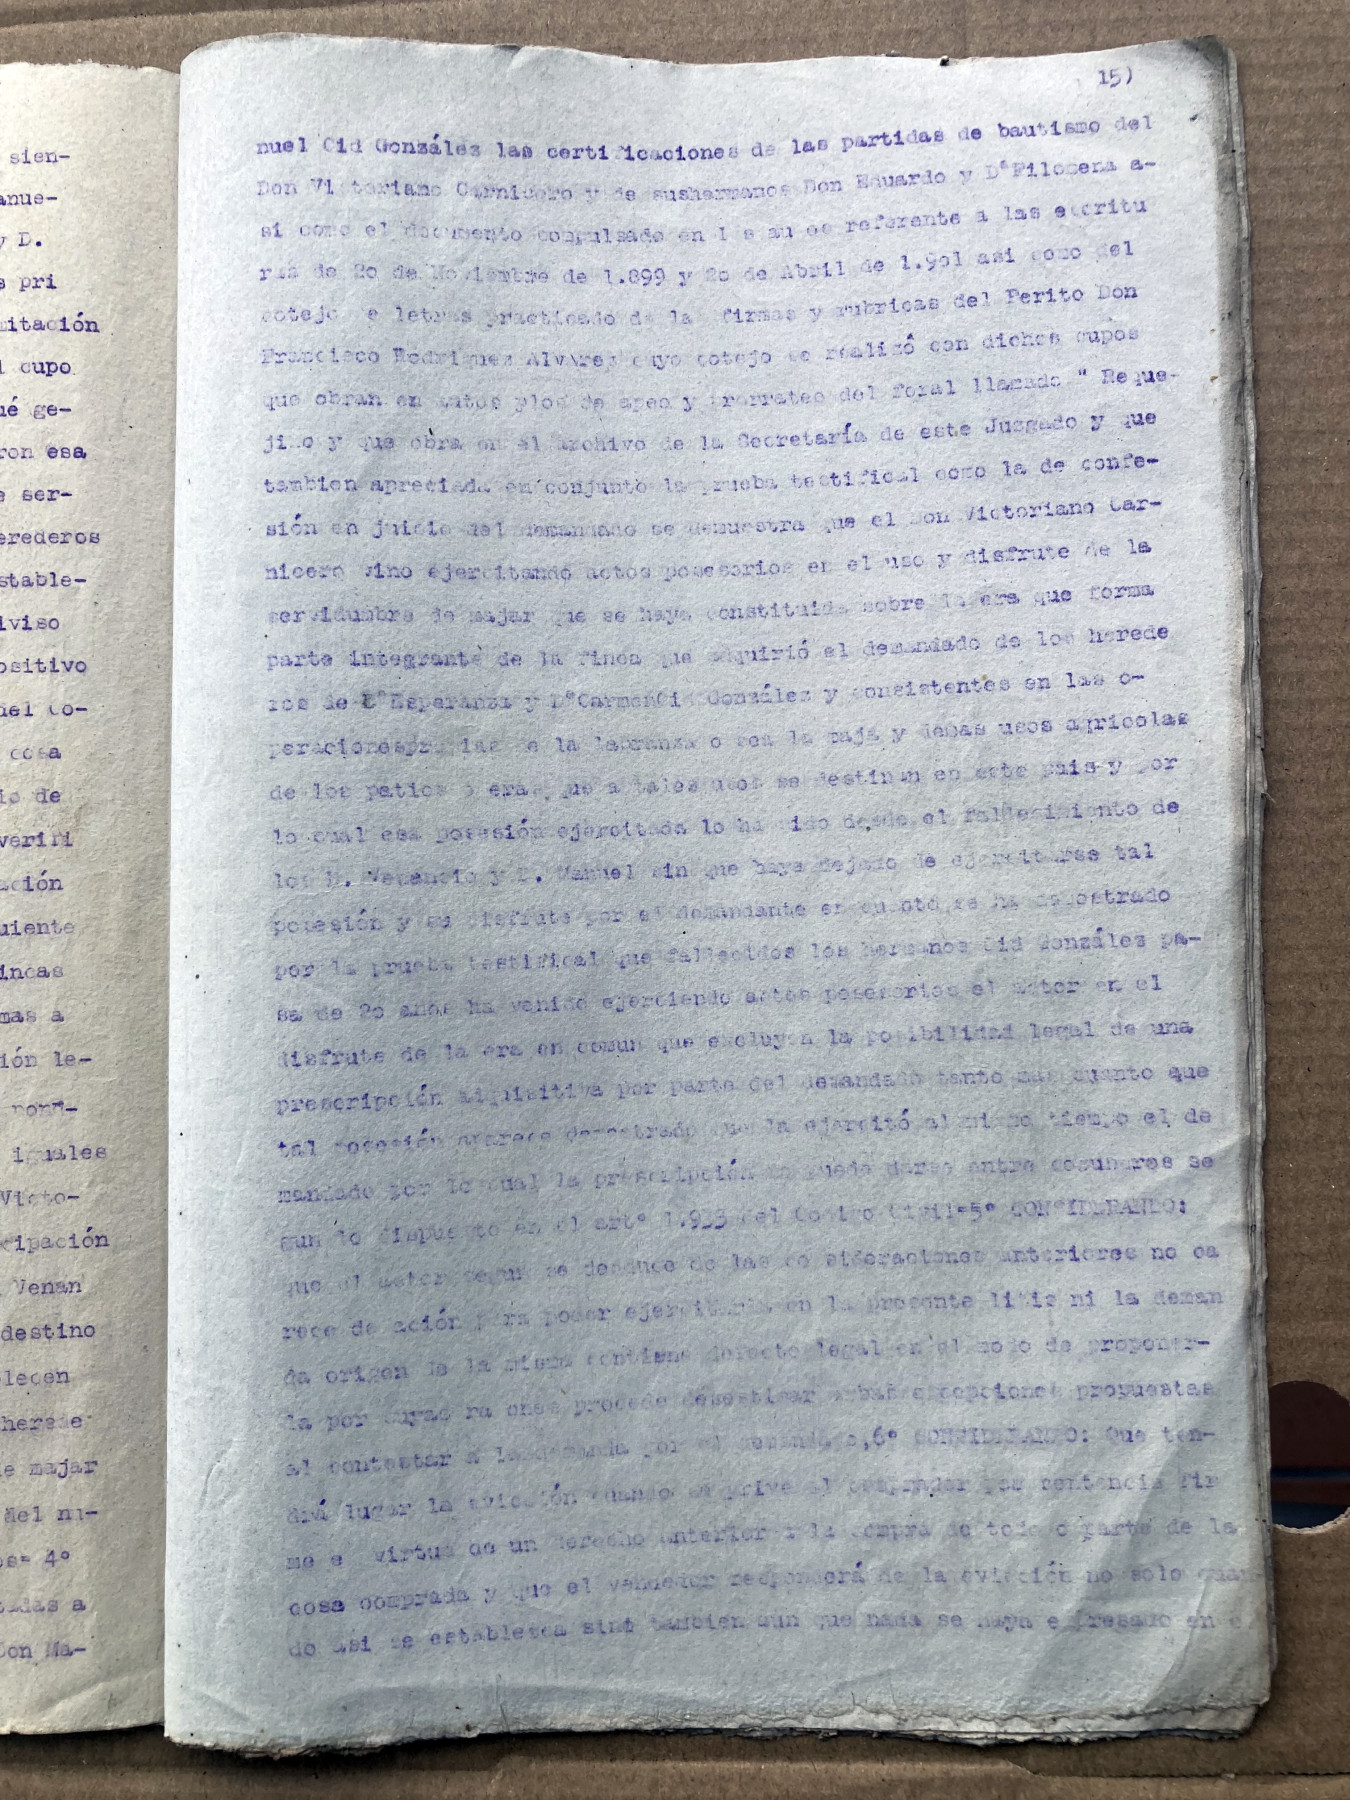 sien-
anue-
y D.
s pri
mitación
l cupo
ué ge-
ron esa
e ser-
erederos
stable-
iviso
ositivo
uel co-
cosa
io de
verifi
ación
uiente
incas
mas a
ión le-
iguales
Victo-
cipación
Venan
destino
lecen
herede
e majar
del nu-
os= 4º
tadas a
Don Ma-
15)
nuel Cid González las certificaciones de las partidas de bautismo del
Don Victoriano Carnicero y de sushermanos Don Eduardo y DªFilomena a-
si como el documento compulsado en referente a las escritu
ras de 2o de Noviembre de 1.899 y 2o de Abril de 1.9o1 asi como del
cotejo e letras practicado de la firmas y rubricas del Perito Don
Francisco Rodriguez Alvarez cuyo cotejo se realizó con dichos cupos
que obran en autos y los de apeo y prorrateo del foral llamado " Reque-
jino y que obra en el archivo de la Secretaría de este Juzgado y que
tambien apreciada en conjunto la prueba testifical como la de confe-
sión en juicio del demandado se demuestra que el Don Victoriano Car-
nicero vino ejercitando actos posesorios en el uso y disfrute de la
servidumbre de majar que se haya constituida sobre la era que forma
parte integrante de la finca que adquirió el demandado de los herede
ros de Dª Esperanza y DªCarmenCid González y consistentes en las o-
peracionespropias de la labranza o sea la maja y demas usos agricolas
de los patios o eras que a tales usos se destinan en este pais y por
lo cual esa posesión ejercitada lo ha sido desde el fallecimiento de
los D. Venancio y D. Manuel sin que haya dejado de ejercitarse tal
posesión y su disfrute por el demandante en cuanto se ha demostrado
por la prueba testifical que fallecidos los hermanos Cid González pa-
sa de 2o años ha venido ejerciendo actos posesorios el actor en el
disfrute de la era en comun que excluyen la posibilidad legal de una
prescripción adquisitiva por parte del demandado tanto mas cuanto que
tal posesión aparece demostrado que la ejercitó al mismo tiempo el de
mandado por lo cual la prescripción no puede darse entre comuneros se
gun lo dispuesto en el artº 1.933 del Codigo Civil=5º CONSIDERANDO:
que el actor segun se deduce de las co sideraciones anteriores no ca
rece de acción para poder ejercitarla en la presente litis ni la deman
da origen de la misma contiene defecto legal en el modo de proponer-
la por cuyas ra ones procede desestimar ambas excepciones propuestas
al contestar a la demanda por el demandado,6º CONSIDERANDO: Que ten-
drá lugar la evicción cuando se prive al comprador por sentencia fir
me e virtud de un derecho anterior a la compra de todo o parte de la
cosa comprada y que el vendedor responderá de la evicción no solo cuan
do asi se establezca sino tambien aun que nada se haya e presado en e